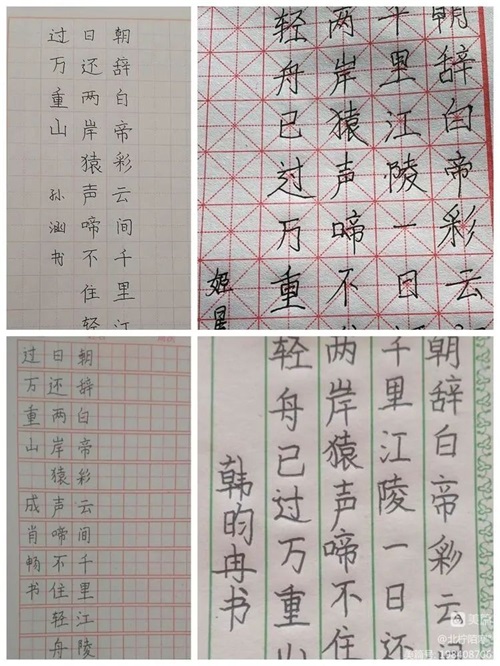 朝辞白帝彩云间千里江
日还两岸猿声啼不住轻
过万重山 孙涵书
朝辞白帝彩云
千里江陵一日
两岸猿声啼不
轻舟已过万重
姬星
朝辞白帝彩云间千里江陵
日还两岸猿声啼不住轻舟
过万重山 成肖畅书
朝辞白帝彩云
千里江陵一日还
两岸猿声啼不住
轻舟已过万重山
韩昀冉书
美篇